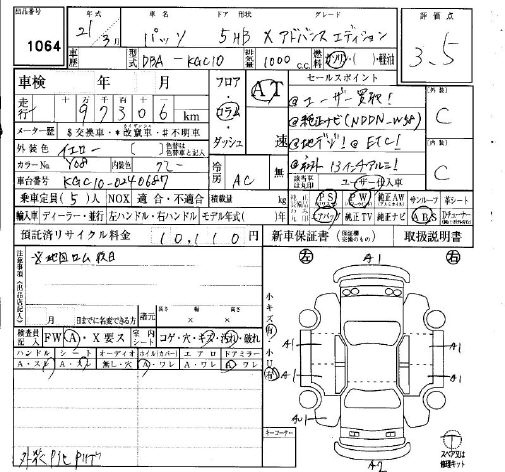 出品番号 1064
年式 21年3月
車名 パッソ
ドア 形状 5HB
グレード X アドバンスエディション
評価点 3.5
車歴
型式 DBA-KGC10
排気量 1000 C.C.
燃料 ガソリン・軽油
車検 年 月
フロア・コラム・ダッシュ
AT
セールスポイント
外装 C
内装 C
走行 十万千百十 97306 km
@ユーザー買取!
@純正ナビ(NDDN-W58)
@地デジ! @ETC!
メーター歴 $交換車・*改竄車・#不明車
外装色 イエロー
カラーNo. Y08
内装色
車台番号 KGC10-0240687
冷房 AC
速
無
ユーザー買入車
乗車定員(5)人 NOX 適合・不適合 積載量 kg
PS PW 純正AW サンルーフ 革シート
輸入車 ディーラー・並行 左ハンドル・右ハンドル モデル年式( )年
エアバッグ 純正TV 純正ナビ ABS
預託済リサイクル料金 10,110円
新車保証書 取扱説明書
注意事項(出品店記入)
※地図ロム欠品
月 日までに名変できる方
諸元 長さ 幅 高さ × ×
検査員記入 FW A・X要ス
室内シート コゲ・穴・キズ・汚れ・破れ
ハンドル シート オーディオ ホイル(カバー) エアロ ドアミラー
A・スレ 無し・穴 A・ワレ A・ワレ ワレ
外装
左 A1 右
小キズ有
小U有
A1 A1
A1 A1
A2
キーコーナー
スペア又は修理キット